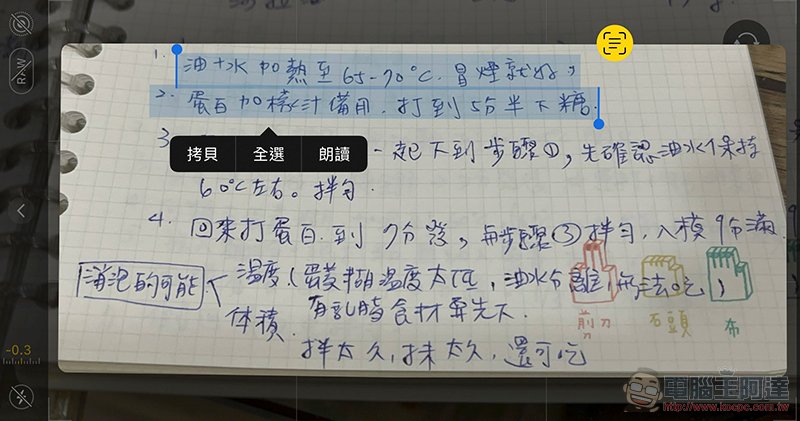 1. 油+水加熱至65-70°C.冒煙就好,
2. 蛋白加檸汁備用.打到5分半下糖.
3
拷貝 全選 朗讀
一起下到步驟①,先確認油水保持
60°C左右。拌勻.
4. 回來打蛋白.到7分發,與步驟③拌勻,入模9分滿.
消泡的可能
溫度(蛋黃糊溫度太低,油水分離,無法吃)
有乳脂食材要先下.
體積.
拌太久,抹太久,還可吃
剪刀 石頭 布
RAW
-0.3
電腦王阿達
http://www.kocpc.com.tw